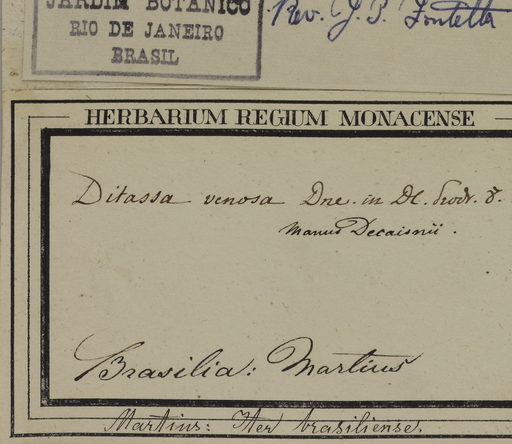 JARDIM BOTANICO
RIO DE JANEIRO
BRASIL
Rev. J. P. Fontella
HERBARIUM REGIUM MONACENSE
Ditassa venosa Dne. in DC. Prodr. 8.
Manus Decaisnii.
Brasilia: Martius
Martius: Iter brasiliense.